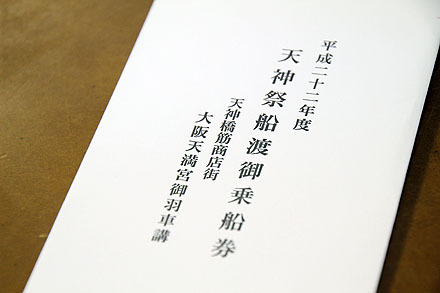 平成二十二年度
天神祭船渡御乗船券
天神橋筋商店街
大阪天満宮御羽車講